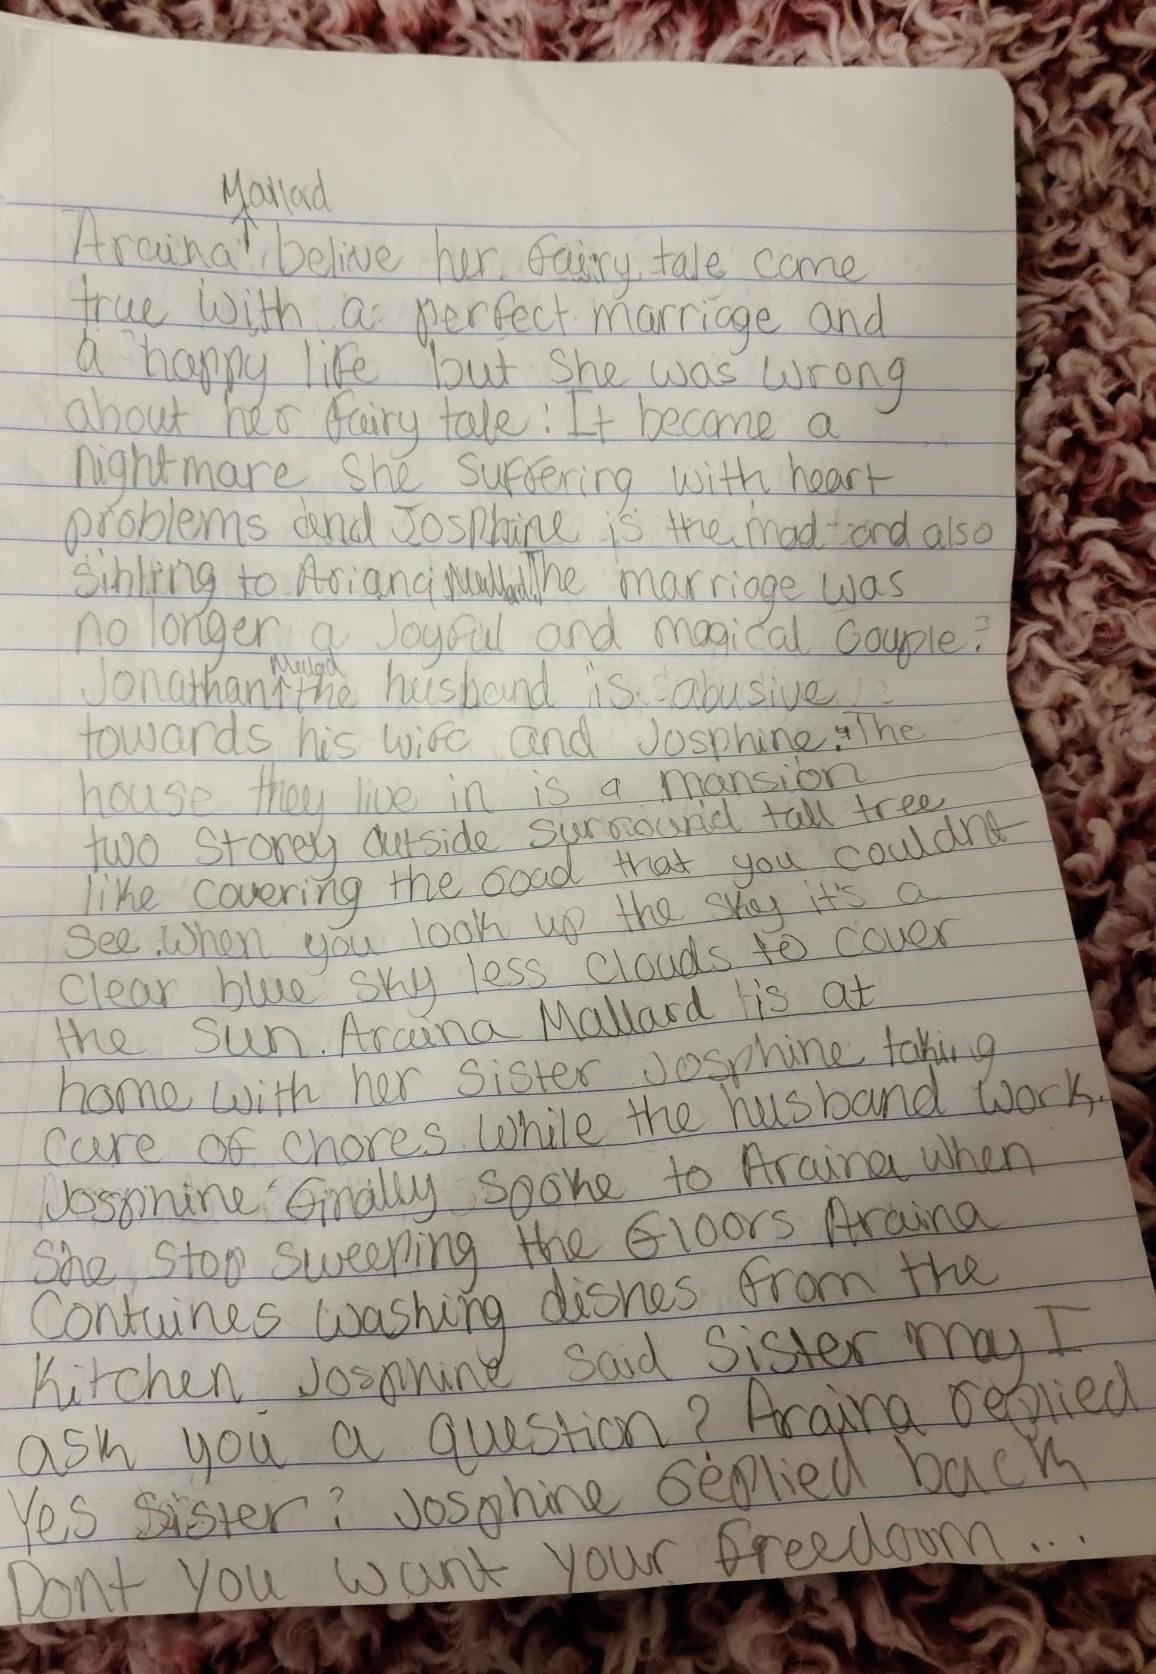 Mallard
Araina belive her fairy tale come
true with a perfect marriage and
a happy life but she was wrong
about her fairy tale. It become a
nightmare she suffering with heart
problems and Josphine is the mad and also
sibling to Ariana Mallard. The marriage was
no longer a Joyful and magical couple.
Mallad
Jonathan the husband is abusive
towards his wife and Josphine. The
house they live in is a mansion
two storey outside surround tall tree
like covering the road that you couldnt
see. When you look up the sky it's a
clear blue sky less clouds to cover
the sun. Araina Mallard is at
home with her sister Josphine taking
care of chores while the husband work.
Josphine finally spoke to Araina when
She stop sweeping the floors Araina
Contuines washing dishes from the
Kitchen Josphine said Sister may I
ask you a question? Araina replied
Yes Sister? Josphine replied back
Dont you want your freedoom...